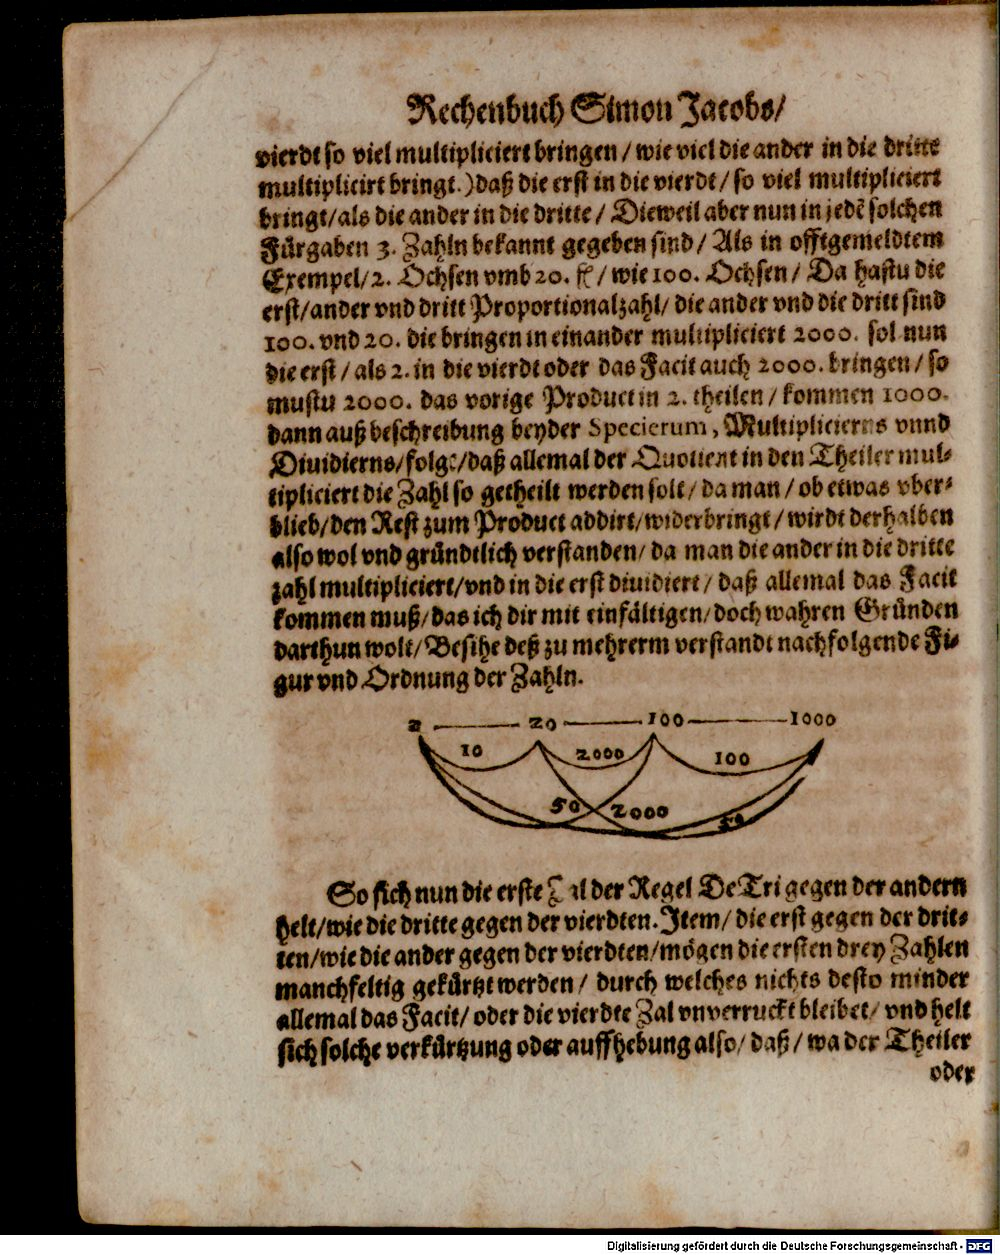 Rechenbuch Simon Jacobs/
vierdt so viel multipliciert bringen / wie viel die ander in die dritte
multiplicirt bringt.) daß die erst in die vierdt / so viel multipliciert
bringt/als die ander in die dritte / Dieweil aber nun in jedē solchen
Fürgaben 3. Zahln bekannt gegeben sind / Als in offtgemeldtem
Exempel/2. Ochsen vmb 20. fl / wie 100. Ochsen / Da hastu die
erst/ander vnd dritt Proportionalzahl/ die ander vnd die dritt sind
100. vnd 20. die bringen in einander multipliciert 2000. sol nun
die erst / als 2. in die vierdt oder das Facit auch 2000. bringen / so
mustu 2000. das vorige Product in 2. theilen / kommen 1000.
dann auß beschreibung beyder Specierum, Multiplicierns vnnd
Diuidierns/folgt/daß allemal der Quotient in den Theiler mul-
tipliciert die Zahl so getheilt werden solt / da man / ob etwas vber-
blieb/den Rest zum Product addirt/widerbringt / wirdt derhalben
also wol vnd gründtlich verstanden / da man die ander in die dritte
zahl multipliciert/vnd in die erst diuidiert / daß allemal das Facit
kommen muß/das ich dir mit einfältigen/doch wahren Gründen
darthun wolt/Besihe deß zu mehrerm verstandt nachfolgende Fi-
gur vnd Ordnung der Zahln.
2 20 100 1000
10 2000 100
50 2000 50
So sich nun die erste Zal der Regel De Tri gegen der andern
helt/wie die dritte gegen der vierdten. Item/ die erst gegen der drit-
ten/wie die ander gegen der vierdten/mögen die ersten drey Zahlen
manchfeltig gekürtzt werden / durch welches nichts desto minder
allemal das Facit/ oder die vierdte Zal vnverruckt bleibet/ vnd helt
sich solche verkürtzung oder auffhebung also/ daß / wa der Theiler
oder
Digitalisierung gefördert durch die Deutsche Forschungsgemeinschaft - DFG